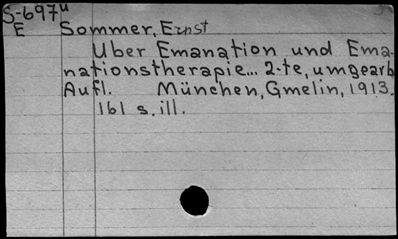 S-697u
E Sommer, Ernst
Uber Emanation und Ema-
nationstherapie... 2-te, umgearb
Aufl. München, Gmelin, 1913.
161 s. ill.